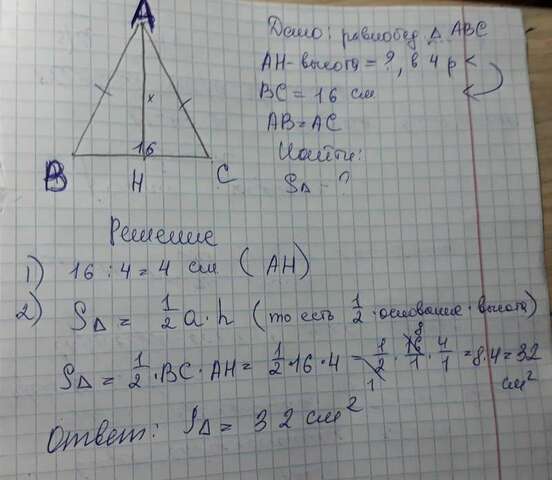 A
x
16
B
H
C
Дано: равнобед Δ ABC
AH - высота = ?, в 4 р <
BC = 16 см
AB = AC
Найти:
SΔ - ?
Решение
1) 16 : 4 = 4 см (AH)
2) SΔ = 1/2 a · h (то есть 1/2 · основание · высота)
SΔ = 1/2 · BC · AH = 1/2 · 16 · 4 = 1/2 · 16/1 · 4/1 = 8 · 4 = 32 см²
Ответ: SΔ = 32 см²